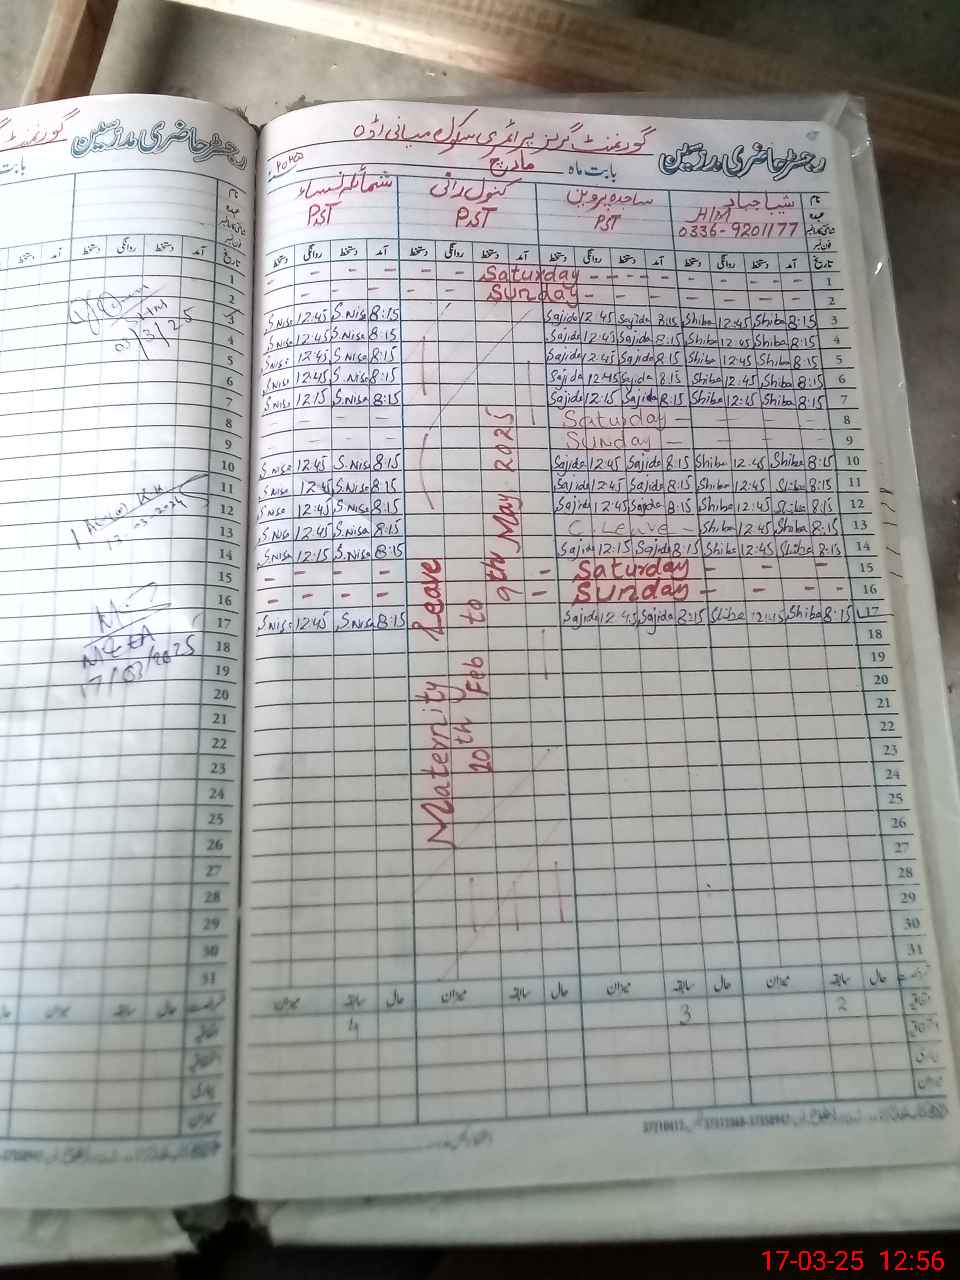 رجسٹر حاضری مدرسین
گورنمنٹ گرلز پرائمری سکول میانی اڈہ
بابت ماہ مارچ
نام شیبا جہاد ساجدہ پروین کنول رانی شمائلہ نساء
HM PST PST PST
0336-9201177
تاریخ آمد دستخط روانگی دستخط آمد دستخط روانگی دستخط آمد دستخط روانگی دستخط آمد دستخط روانگی دستخط
- - - - - Saturday - - - - - - - 1
- - - - - Sunday - - - - - - 2
S.Nisa 12:45 S.Nisa 8:15 Sajida 12:45 Sajida 8:15 Shiba 12:45 Shiba 8:15 3
S.Nisa 12:45 S.Nisa 8:15 Sajida 12:45 Sajida 8:15 Shiba 12:45 Shiba 8:15 4
S.Nisa 12:45 S.Nisa 8:15 Sajida 12:45 Sajida 8:15 Shiba 12:45 Shiba 8:15 5
S.Nisa 12:45 S.Nisa 8:15 Sajida 12:45 Sajida 8:15 Shiba 12:45 Shiba 8:15 6
S.Nisa 12:15 S.Nisa 8:15 Sajida 12:15 Sajida 8:15 Shiba 12:45 Shiba 8:15 7
- - - - Saturday - - - - 8
- - - - Sunday - - - - 9
S.Nisa 12:45 S.Nisa 8:15 Sajida 12:45 Sajida 8:15 Shiba 12:45 Shiba 8:15 10
S.Nisa 12:45 S.Nisa 8:15 Sajida 12:45 Sajida 8:15 Shiba 12:45 Shiba 8:15 11
S.Nisa 12:45 S.Nisa 8:15 Sajida 12:45 Sajida 8:15 Shiba 12:45 Shiba 8:15 12
S.Nisa 12:45 S.Nisa 8:15 C.Leave - Shiba 12:45 Shiba 8:15 13
S.Nisa 12:15 S.Nisa 8:15 Sajida 12:15 Sajida 8:15 Shiba 12:45 Shiba 8:15 14
- - - - - Saturday - - - 15
- - - - - Sunday - - - 16
S.Nisa 12:45 S.Nisa 8:15 Sajida 12:45 Sajida 8:15 Shiba 12:15 Shiba 8:15 17
18
19
20
21
22
23
24
25
26
27
28
29
30
31
Maternity Leave
20th Feb to
9th May 2025
حال سابقہ میزان حال سابقہ میزان حال سابقہ میزان حال سابقہ میزان
2 3 4
رجسٹر حاضری مدرسین
گورنمنٹ
بابت
نام
تاریخ
آمد دستخط روانگی دستخط
1
2
3
4
5
6
7
8
9
10
11
12
13
14
15
16
17
18
19
20
21
22
23
24
25
26
27
28
29
30
31
03/3/25
MEA
17/03/2025
حال سابقہ میزان
17-03-25 12:56